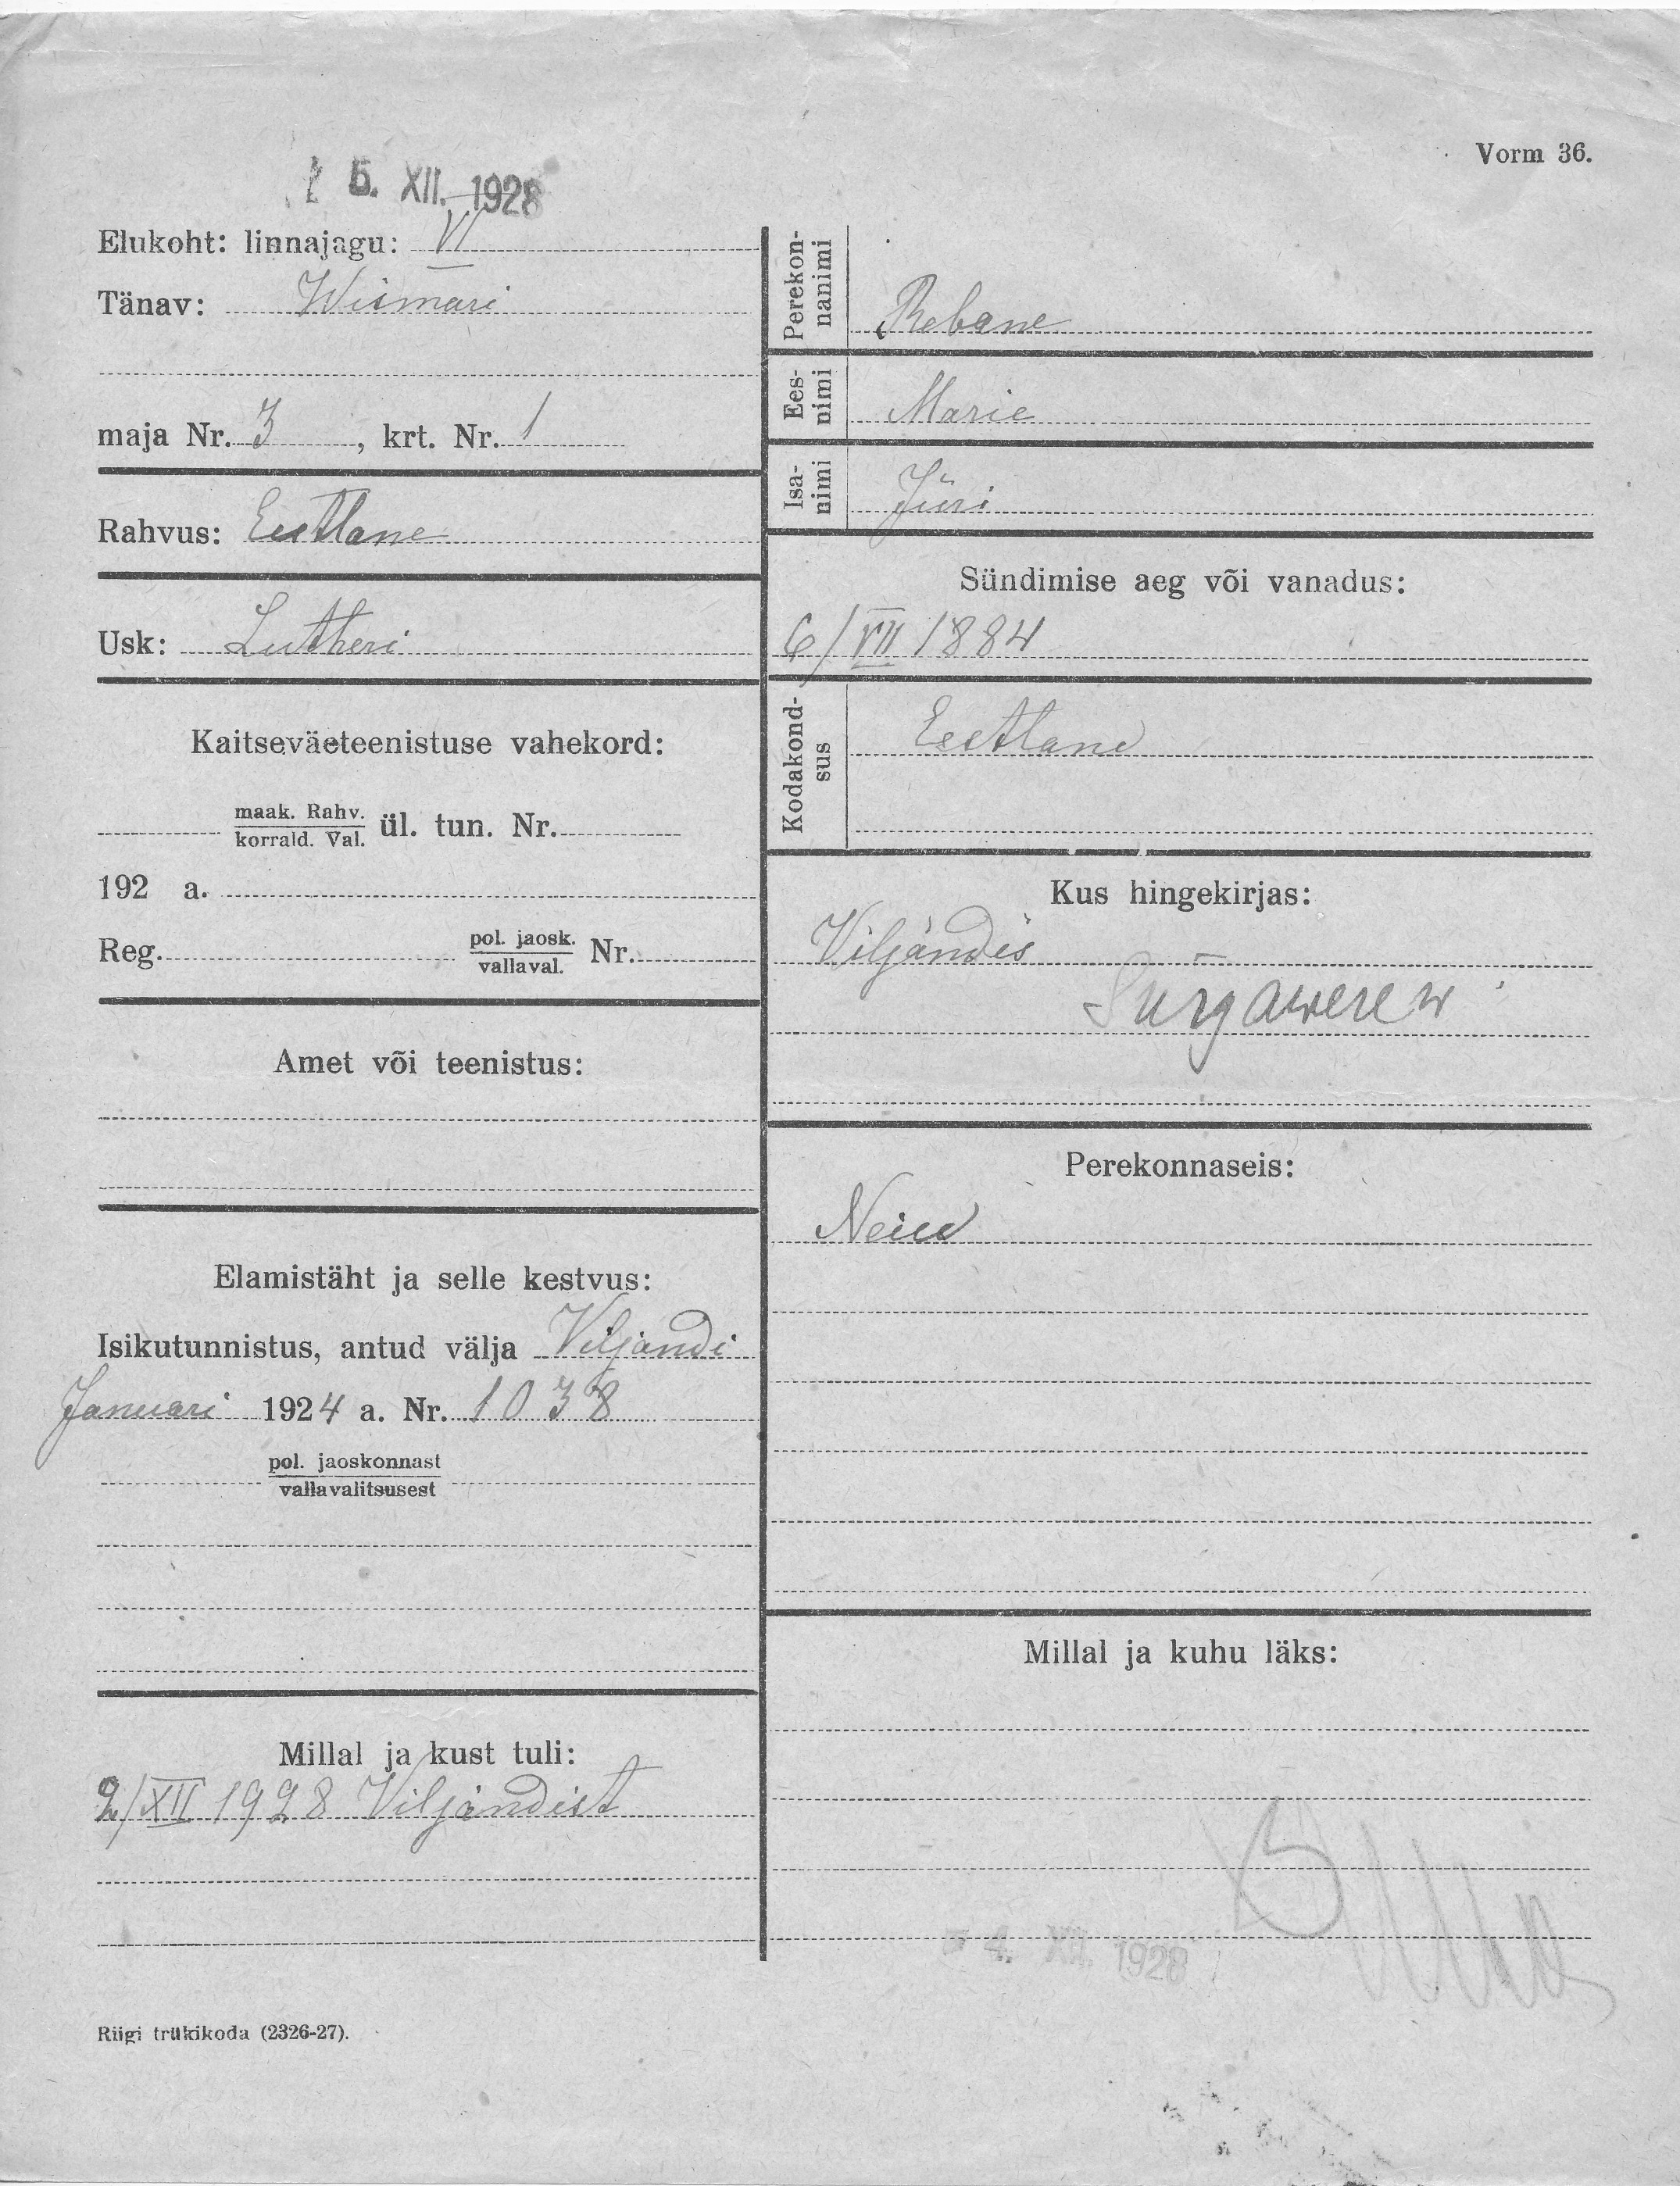 Vorm 36.
5. XII. 1928
Elukoht: linnajagu: VI
Tänav: Wismari
maja Nr. 3, krt. Nr. 1
Rahvus: Eestlane
Usk: Lutheri
Kaitseväeteenistuse vahekord:
maak. Rahv.
korrald. Val. ül. tun. Nr.
192 a.
Reg. pol. jaosk.
vallaval. Nr.
Amet või teenistus:
Elamistäht ja selle kestvus:
Isikutunnistus, antud välja Viljandi
Januari 1924 a. Nr. 1038
pol. jaoskonnast
vallavalitsusest
Millal ja kust tuli:
2/XII 1928 Viljandist
Riigi trükikoda (2326-27).
Perekon-
nanimi Rebane
Ees-
nimi Marie
Isa-
nimi Jüri
Sündimise aeg või vanadus:
6/VII 1884
Kodakond-
sus Eestlane
Kus hingekirjas:
Viljandis
Sürgawere w
Perekonnaseis:
Neiu
Millal ja kuhu läks:
4. XII. 1928